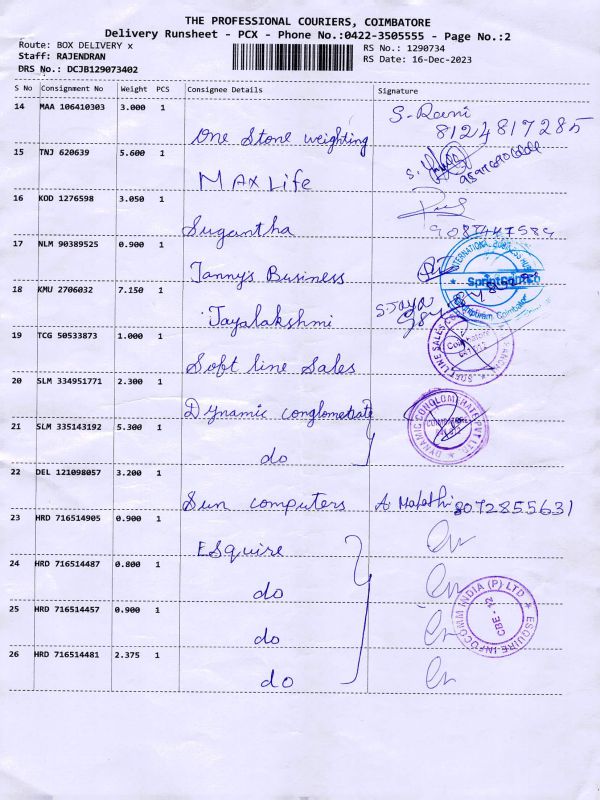 THE PROFESSIONAL COURIERS, COIMBATORE
Delivery Runsheet - PCX - Phone No.:0422-3505555 - Page No.:2
Route: BOX DELIVERY x
RS No.: 1290734
Staff: RAJENDRAN
RS Date: 16-Dec-2023
DRS No.: DCJB129073402
S No Consignment No Weight PCS Consignee Details Signature
14 MAA 106410303 3.000 1
One Stone weighting
S. Rani
8124817285
15 TNJ 620639 5.600 1
MAX Life
S.
16 KOD 1276598 3.050 1
Sugantha
9087447584
17 NLM 90389525 0.900 1
Tanny's Business
INTERNATIONAL BUSINESS HUB
Coimbatore
18 KMU 2706032 7.150 1
Jayalakshmi
S. Jaya
19 TCG 50533873 1.000 1
Soft line Sales
SOFT LINE SALES
20 SLM 334951771 2.300 1
Dynamic conglometrate
DYNAMIC CONGLOMERATE PVT LTD
21 SLM 335143192 5.300 1
do
22 DEL 121098057 3.200 1
Sun computers
A Malathi 8072855631
23 HRD 716514905 0.900 1
ESquire
24 HRD 716514487 0.800 1
do
25 HRD 716514457 0.900 1
do
ESQUIRE INFOCOMM INDIA (P) LTD
CBE - 12
26 HRD 716514481 2.375 1
do